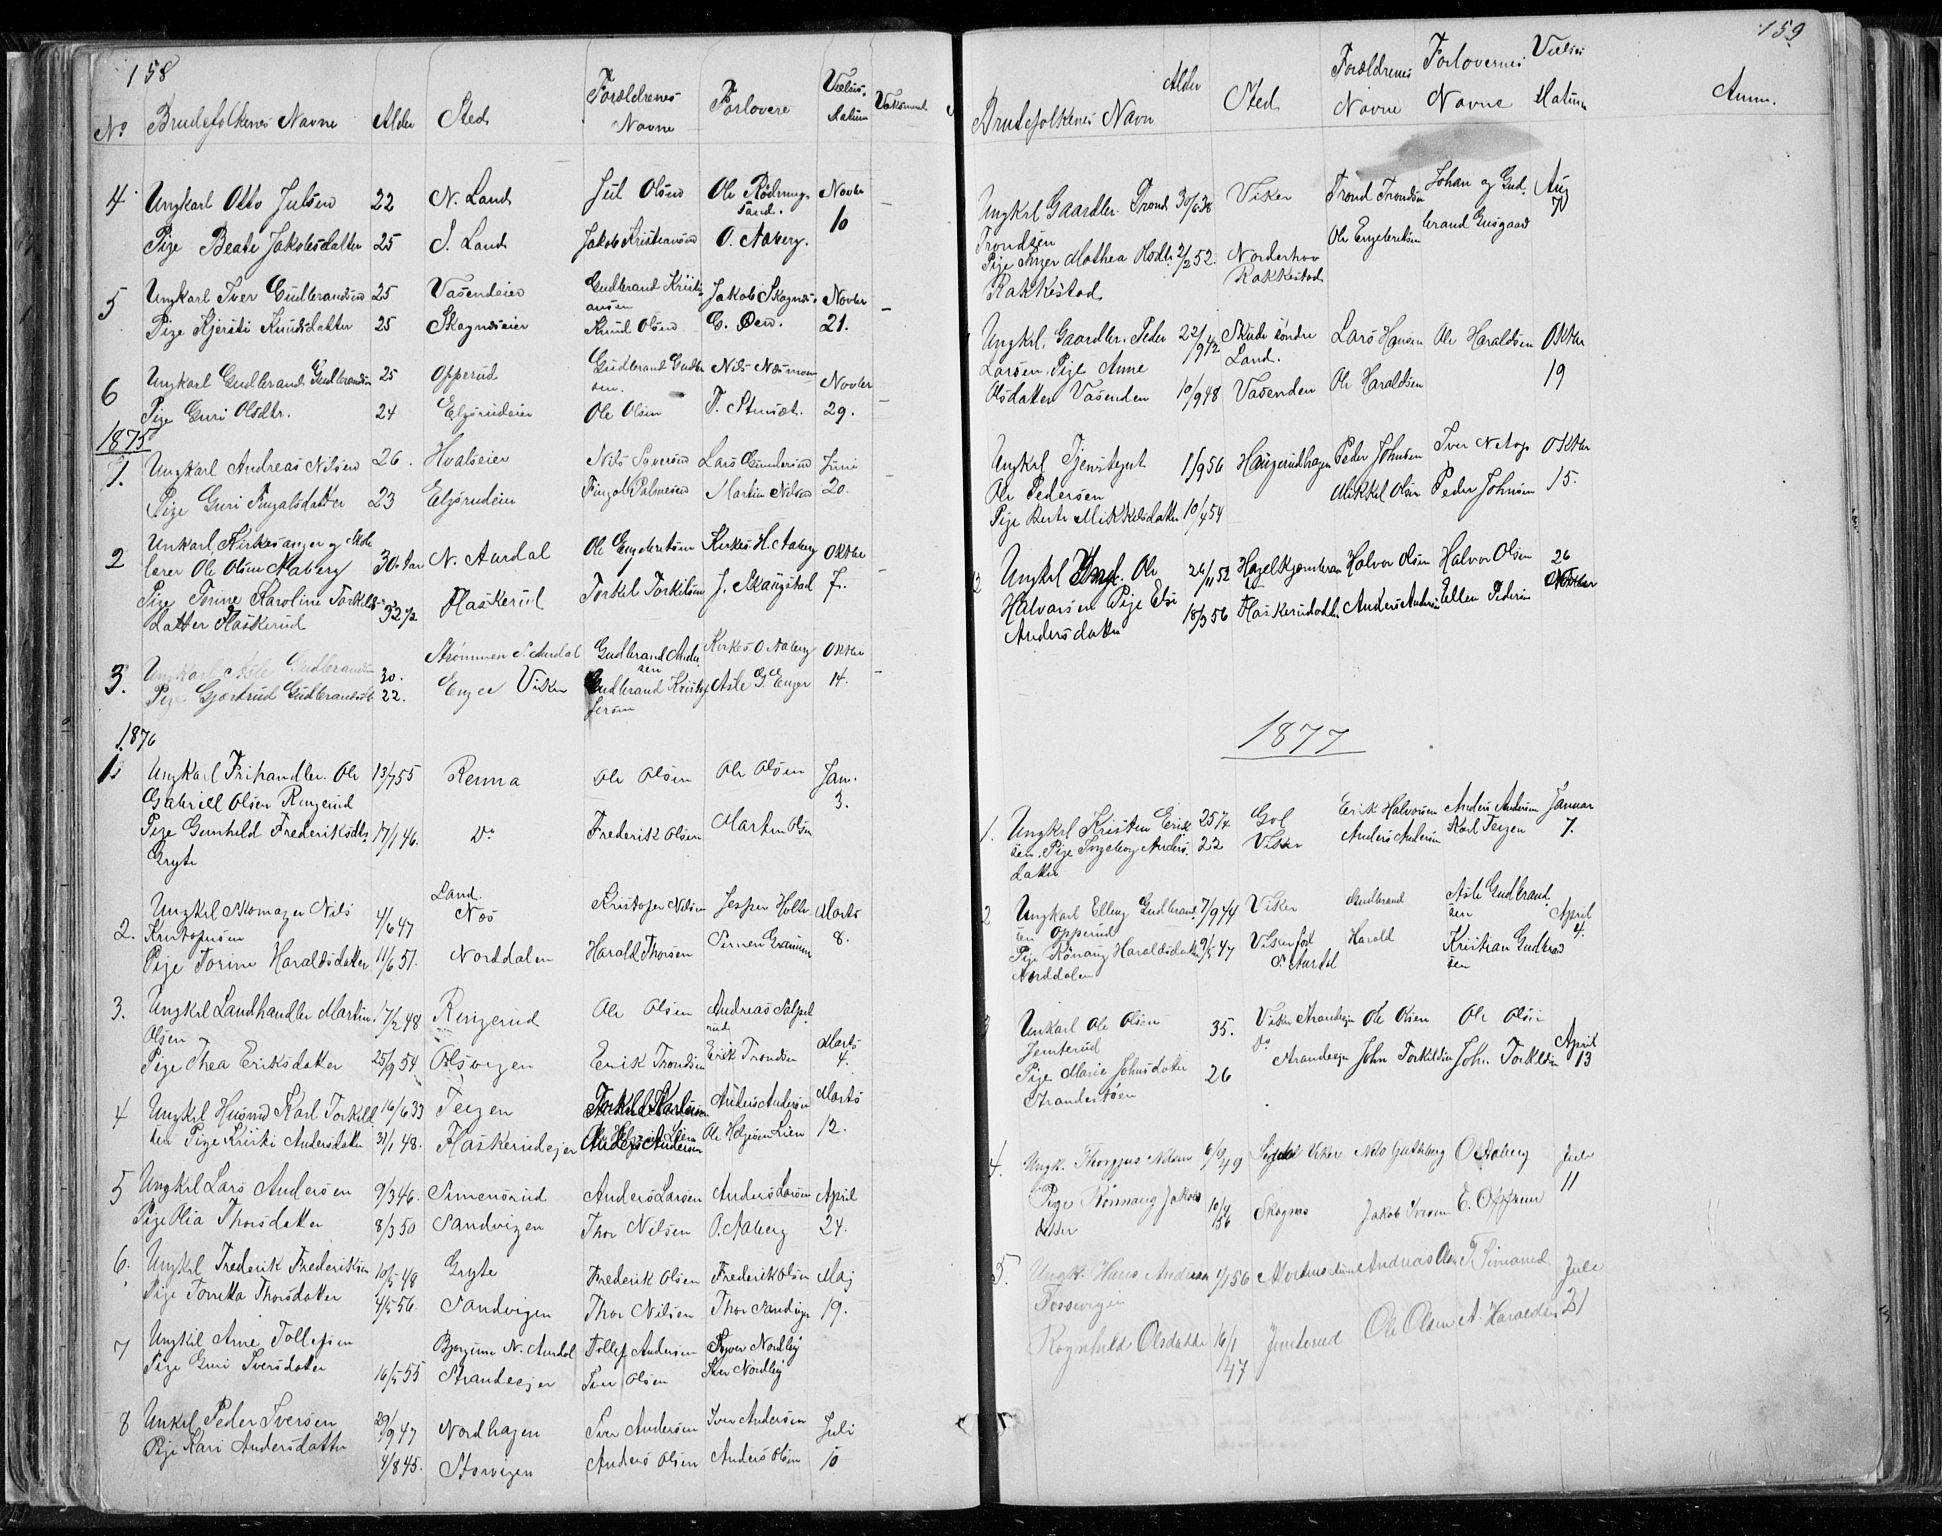 158
No Brudefolkenes Navne Alder Sted Forældrenes Navne Forlovere Vielses Datum
4 Ungkarl Otto Julsen 22 N. Land Jul Olsen Ole Rødnings- Novbr
sand. 10
Pige Beate Jakobsdatter 25 S. Land Jakob Kristiansen O. Aaberg.
5 Ungkarl Iver Gudbrandsen 25 Vasendeier Gudbrand Kristi- Jakob Skagnes Novbr
ansen
Pige Kjersti Knudsdatter 25 Skagnæseier Knud Olsen G. Øen. 21.
6 Ungkarl Gudbrand Gudbrandsen 25 Opperud Gudbrand Gudbr Nils Næsmoen Novbr
sen.
Pige Guri Olsdtr. 24 Elsrudeier Ole Olsen T. 29.
1875
1. Ungkarl Andreas Nilsen 26. Hvalseier Nils Syversen Lars Gundersen Juni
Pige Guri Fingalsdatter 23 Elsrudeier Fingal Palmesen Martin Nilsen 20.
2 Unkarl, Kirkesanger og Skole
lærer Ole Olsen Aaberg 30 Aar N. Aurdal Ole Engebretsen Kirkes. H. Aaberg Oktbr
Pige Torine Karoline Torkilds 32 1/2 Flaskerud Torkel Torkilsen J. Skaugstad 7.
datter Flaskerud
3. Ungkarl Asle Gudbrandsen 30. Strømmen S. Aurdal Gudbrand Ander Kirkes O Aaberg Oktbr
sen
Pige Gjertrud Gudbrandsdt 22. Enger Viker Gudbrand Kristof Asle G. Enger 14.
fersen
1876
1. Ungkarl Frihandler. Ole 13/7 55 Renna Ole Olsen Ole Olsen Jan.
Gabriel Olsen Ringerud 3.
Pige Gunhild Frederiksdtr 17/1 46. Do Frederik Olsen Martin Olsen
Gryte
2. Ungkrl Skomager Nils 4/6 47 Land. Næs Kristofer Nilsen Jesper Holte Marts
Kristofersen 8.
Pige Torine Haraldsdatter 11/6 51. Norddalen Harald Thorsen
3. Ungkrl Landhandler Martin 17/2 48 Ringerud Ole Olsen Andreas
Olsen Marts
Pige Thea Eriksdatter 25/9 54 Olsvigen Erik Trondsen Erik Trondsen 4.
4 Ungkrl Husmd Karl Torkild 16/6 33 Teigen Torkild Karlsen Anders Andersen Marts
sen Pige Kristi Andersdatter 31/1 48. Flaskerudejer Anders Andersen Ole Helgesen Lien 12.
5 Ungkrl Lars Andersen 9/3 46. Simensrud Anders Larsen Anders Larsen April
Pige Olia Thorsdatter 8/3 50 Sandvigen Thor Nilsen O. Aaberg 24.
6. Ungkrl Frederik Frederiksen 10/5 48 Gryte Frederik Olsen Frederik Olsen Maj
Pige Torretta Thorsdatter 4/5 56. Sandvigen Thor Nilsen Thor Sandvigen 19.
7 Ungkrl Arne Tollefsen Bjørgum N. Aurdal Tollef Andersen Syver Nordby
Pige Guri Iversdatter 16/5 55 Strandeejer Iver Olsen Iver Nordby
8 Unkrl Peder Iversen 29/9 47 Nordhagen Iver Andersen Iver Andersen Juli
Pige Kari Andersdatter 4/8 45. Storvigen Anders Olsen Anders Olsen 10
159
Brudefolkenes Navn Alder Sted Forældrenes Navne Forlovernes Navne Vielses Datum Anm.
Ungkrl Gaardbr. Trond 30/6 38 Viker Trond Trondsen Johan og Gud. Aug
Trondsen Ole Engebretsen brand Gusgaard
Pige Inger Mathea Olsdtr 2/2 52. Norderhov
Rakkestad Rakkestad
Ungkrl. Gaardbr. Peder 22/9 42 Skute søndre Lars Hansen Ole Haraldsen Oktbr
Larsen. Pige Anne Land. 19
Olsdatter Vasenden 10/9 48 Vasenden Ole Haraldsen
Ungkrl Tjenstegut 1/9 56 Haugerudhagen Peder Johnsen Iver Oktbr
Ole Pedersen Mikkel Olsen Peder Johnsen 15.
Pige Berte Mikkelsdatter 10/4 54
12 Ungkrl Ole 24/11 52 Halvor Olsen Halvor Olsen 26
Halvorsen Pige Else 18/3 56 Flaskerudodden Anders Andersen Ellen Pedersen Novbr
Andersdatter
1877
1. Ungkrl Kristen Erik 25 1/4 Gol Erik Halvorsen Anders Andersen Januar
sen. Pige Ingeborg Anders. 22 Viker Anders Andersen Karl Teigen 7.
datter
2 Ungkarl Elling Gudbrand 7/9 44 Viker Gudbrand Asle Gudbrand
sen Opperud sen April
Pige Rønnaug Haraldsdatter 9/5 47 S. Aurdal Harald Kristian Gudbrand 4.
Norddalen sen
3 Unkarl Ole Olsen 35. Viker Strandeejer Ole Olsen Ole Olsen
Jemterud Do April
Pige Marie Johnsdatter 26 Strandeejer John Torkildsen John Torkildsen 13
Strandestøen
4. Ungk. Thorgjus Nilsen 6/9 49 Sigdal Viker Nils Guthberg O Aaberg Juli
Pige Rønnaug Jakobs 10/4 56 Skagnes Jakob Iversen E. Opperud 11
datter
5. Ungk. Hans Andersen 1/1 56 Andreas Olsen T Simerud Juli
Fossvigen
Rognhild Olsdatter 16/1 47 Jemterud Ole Olsen A. Haraldsen 21